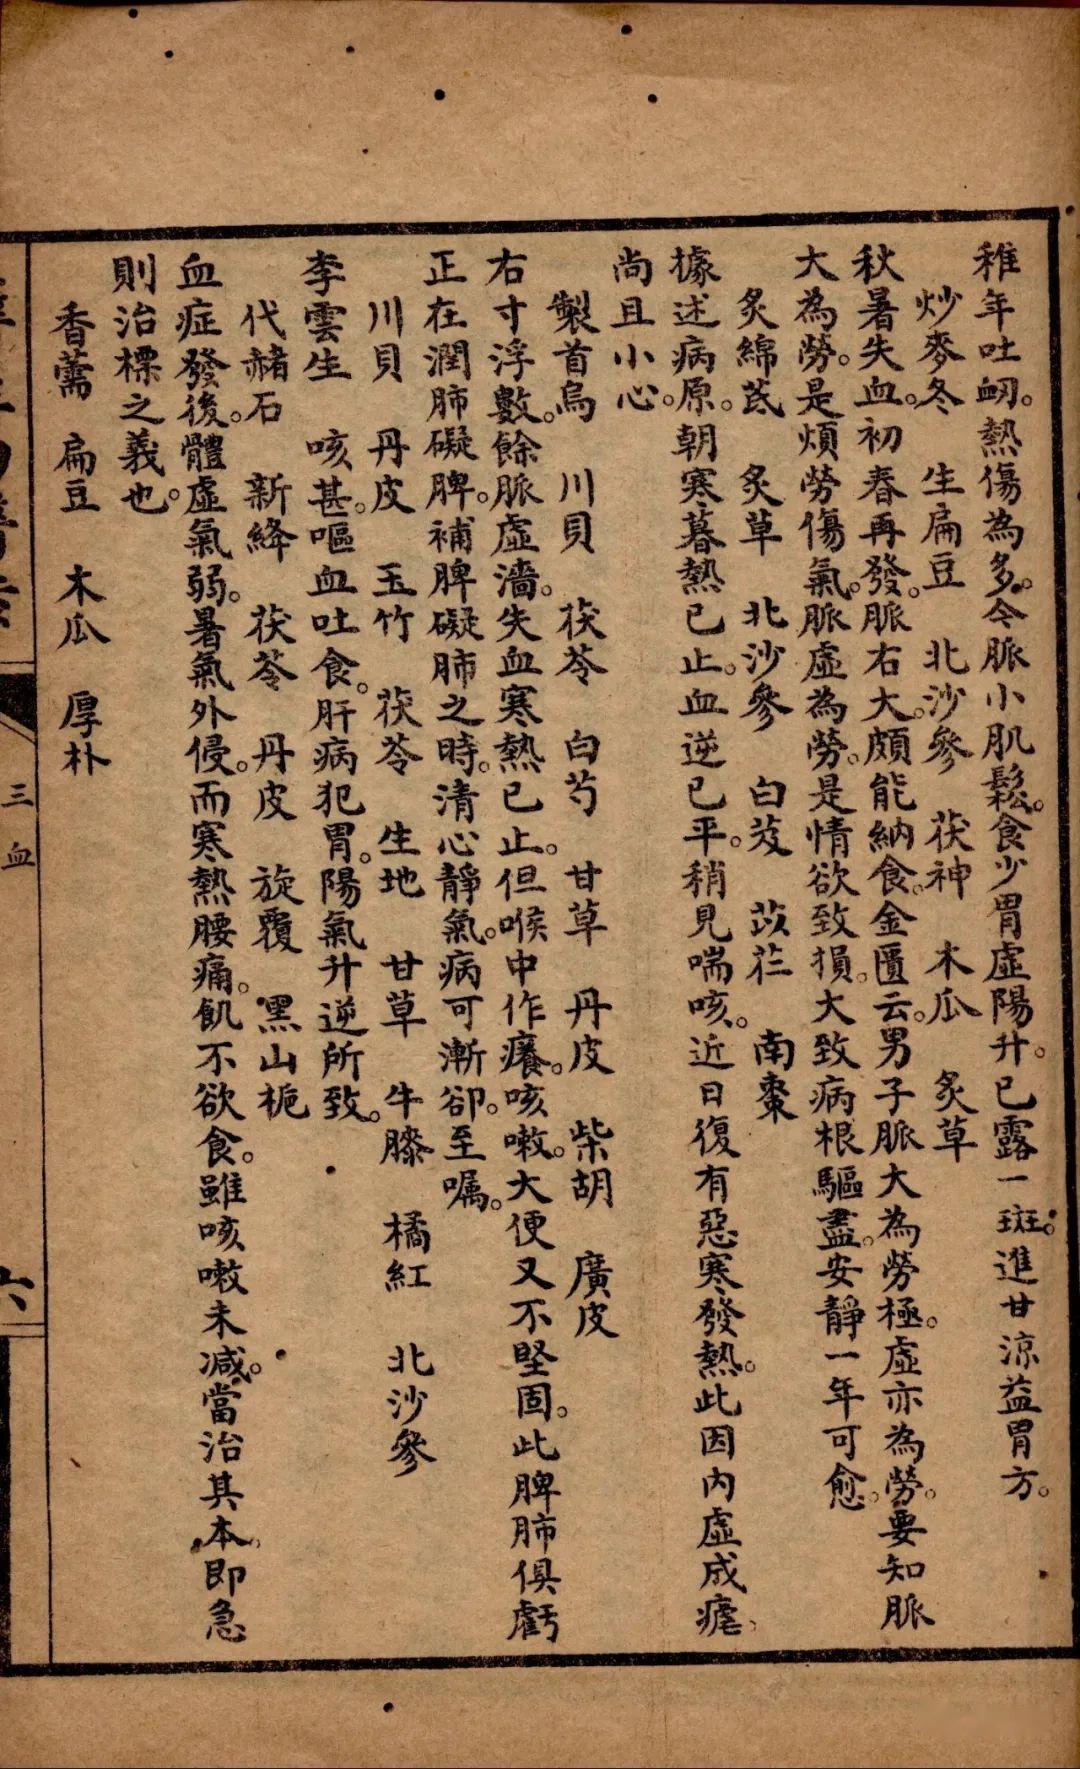 稚年吐衂。熱傷為多。今脈小肌鬆。食少胃虛陽升。已露一斑。進甘涼益胃方。
炒麥冬　生扁豆　北沙參　茯神　木瓜　炙草
秋暑失血。初春再發。脈右大。頗能納食。金匱云。男子脈大為勞極。虛亦為勞。要知脈
大為勞。是煩勞傷氣。脈虛為勞。是情欲致損。大致病根驅盡。安靜一年可愈。
炙綿芪　炙草　北沙參　白芨　苡仁　南棗
據述病原。朝寒暮熱已止。血逆已平。稍見喘咳。近日復有惡寒發熱。此因內虛成瘧。
尚且小心。
製首烏　川貝　茯苓　白芍　甘草　丹皮　柴胡　廣皮
右寸浮數。餘脈虛濇。失血寒熱已止。但喉中作癢。咳嗽。大便又不堅固。此脾肺俱虧
正在潤肺礙脾。補脾礙肺之時。清心靜氣。病可漸卻。至嘱。
川貝　丹皮　玉竹　茯苓　生地　甘草　牛膝　橘紅　北沙參
李雲生　咳甚。嘔血吐食。肝病犯胃。陽氣升逆所致。
代赭石　新絳　茯苓　丹皮　旋覆　黑山梔
血症發後。體虛氣弱。暑氣外侵。而寒熱腰痛。飢不欲食。雖咳嗽未減。當治其本。即急
則治標之義也。
香薷　扁豆　木瓜　厚朴
三血
六